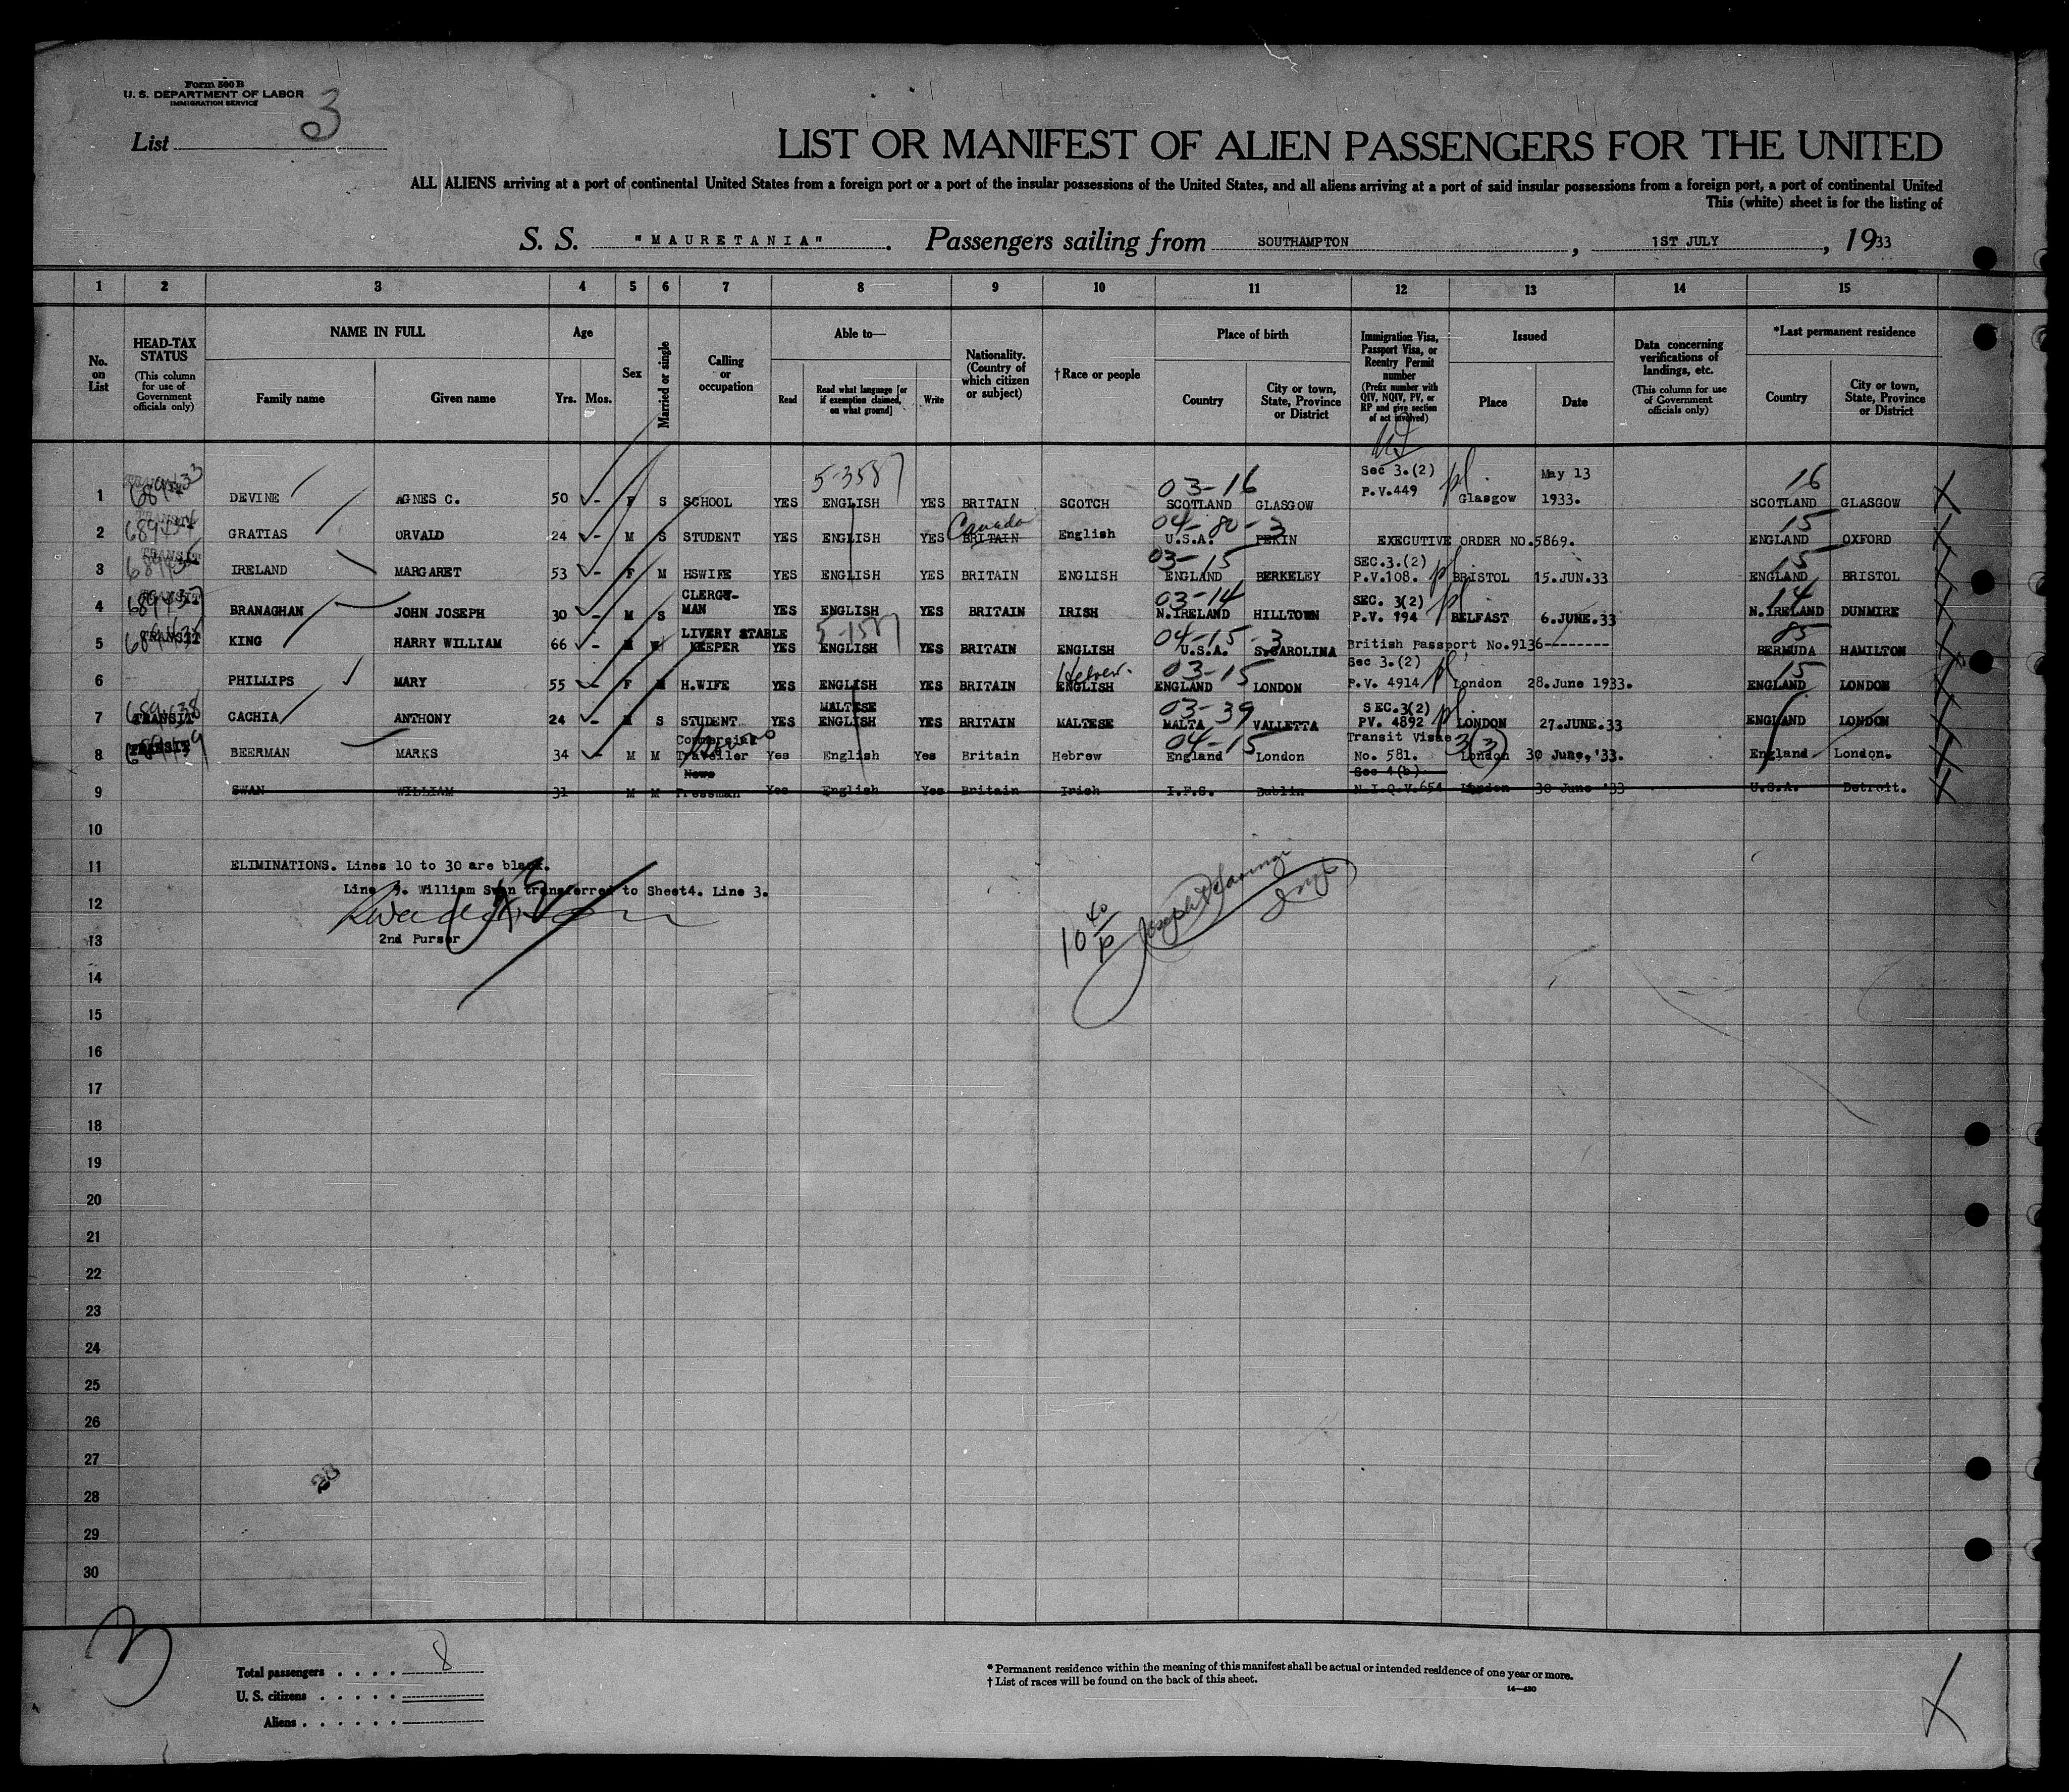 Form 500 B
U. S. DEPARTMENT OF LABOR
IMMIGRATION SERVICE
List 3
LIST OR MANIFEST OF ALIEN PASSENGERS FOR THE UNITED
ALL ALIENS arriving at a port of continental United States from a foreign port or a port of the insular possessions of the United States, and all aliens arriving at a port of said insular possessions from a foreign port, a port of continental United
This (white) sheet is for the listing of
S. S. "MAURETANIA". Passengers sailing from SOUTHAMPTON, 1ST JULY, 1933
1 2 3 4 5 6 7 8 9 10 11 12 13 14 15
No. on List
HEAD-TAX STATUS (This column for use of Government officials only)
NAME IN FULL
Family name
Given name
Age
Yrs. Mos.
Sex
Married or single
Calling or occupation
Able to—
Read
Read what language [or if exemption claimed, on what ground]
Write
Nationality. (Country of which citizen or subject)
†Race or people
Place of birth
Country
City or town, State, Province or District
Immigration Visa, Passport Visa, or Reentry Permit number (Prefix number with QIV, NQIV, PV, or RP and give section of act involved)
Issued
Place
Date
Data concerning verifications of landings, etc. (This column for use of Government officials only)
*Last permanent residence
Country
City or town, State, Province or District
5-358 03-16 16
1 DEVINE AGNES C. 50 - F S SCHOOL YES ENGLISH YES BRITAIN SCOTCH SCOTLAND GLASGOW Sec 3.(2) P.V.449 pl Glasgow May 13 1933. SCOTLAND GLASGOW
Canada 04-80-3 15
2 TRANSIT GRATIAS ORVALD 24 - M S STUDENT YES ENGLISH YES BRITAIN English U.S.A. PEKIN EXECUTIVE ORDER NO.5869. ENGLAND OXFORD
03-15 15
3 TRANSIT IRELAND MARGARET 53 - F M HSWIFE YES ENGLISH YES BRITAIN ENGLISH ENGLAND BERKELEY SEC.3.(2) P.V.108. pl BRISTOL 15.JUN.33 ENGLAND BRISTOL
03-14 14
4 TRANSIT BRANAGHAN JOHN JOSEPH 30 - M S CLERGY-MAN YES ENGLISH YES BRITAIN IRISH N.IRELAND HILLTOWN SEC. 3(2) P.V. 194 pl BELFAST 6.JUNE.33 N.IRELAND DUNMIRE
5-158 04-15-3 85
5 TRANSIT KING HARRY WILLIAM 66 - M W LIVERY STABLE KEEPER YES ENGLISH YES BRITAIN ENGLISH U.S.A. S.CAROLINA British Passport No.9136-------- BERMUDA HAMILTON
Hebrew 03-15 15
6 PHILLIPS MARY 55 - F M H.WIFE YES ENGLISH YES BRITAIN ENGLISH ENGLAND LONDON Sec 3.(2) P.V. 4914 pl London 28.June 1933. ENGLAND LONDON
03-39
7 TRANSIT CACHIA ANTHONY 24 - M S STUDENT YES MALTESE ENGLISH YES BRITAIN MALTESE MALTA VALLETTA SEC.3(2) PV. 4892 pl LONDON 27.JUNE.33 ENGLAND LONDON
04-15 3(3)
8 TRANSIT BEERMAN MARKS 34 - M M Commercial Traveller Yes English Yes Britain Hebrew England London Transit Visae No. 581. London 30 June,'33. England London.
9 SWAN WILLIAM 31 M M News Pressman Yes English Yes Britain Irish I.F.S. Dublin Sec 4(b) N.I.Q.V.654 London 30 June '33 U.S.A. Detroit.
10
11 ELIMINATIONS. Lines 10 to 30 are blank.
Line 9. William Swan transferred to Sheet4. Line 3.
12
2nd Purser
10 40 P
13
14
15
16
17
18
19
20
21
22
23
24
25
26
27
28
29
30
3
Total passengers . . . . 8
U. S. citizens . . . . .
Aliens . . . . . .
* Permanent residence within the meaning of this manifest shall be actual or intended residence of one year or more.
† List of races will be found on the back of this sheet.
14—430